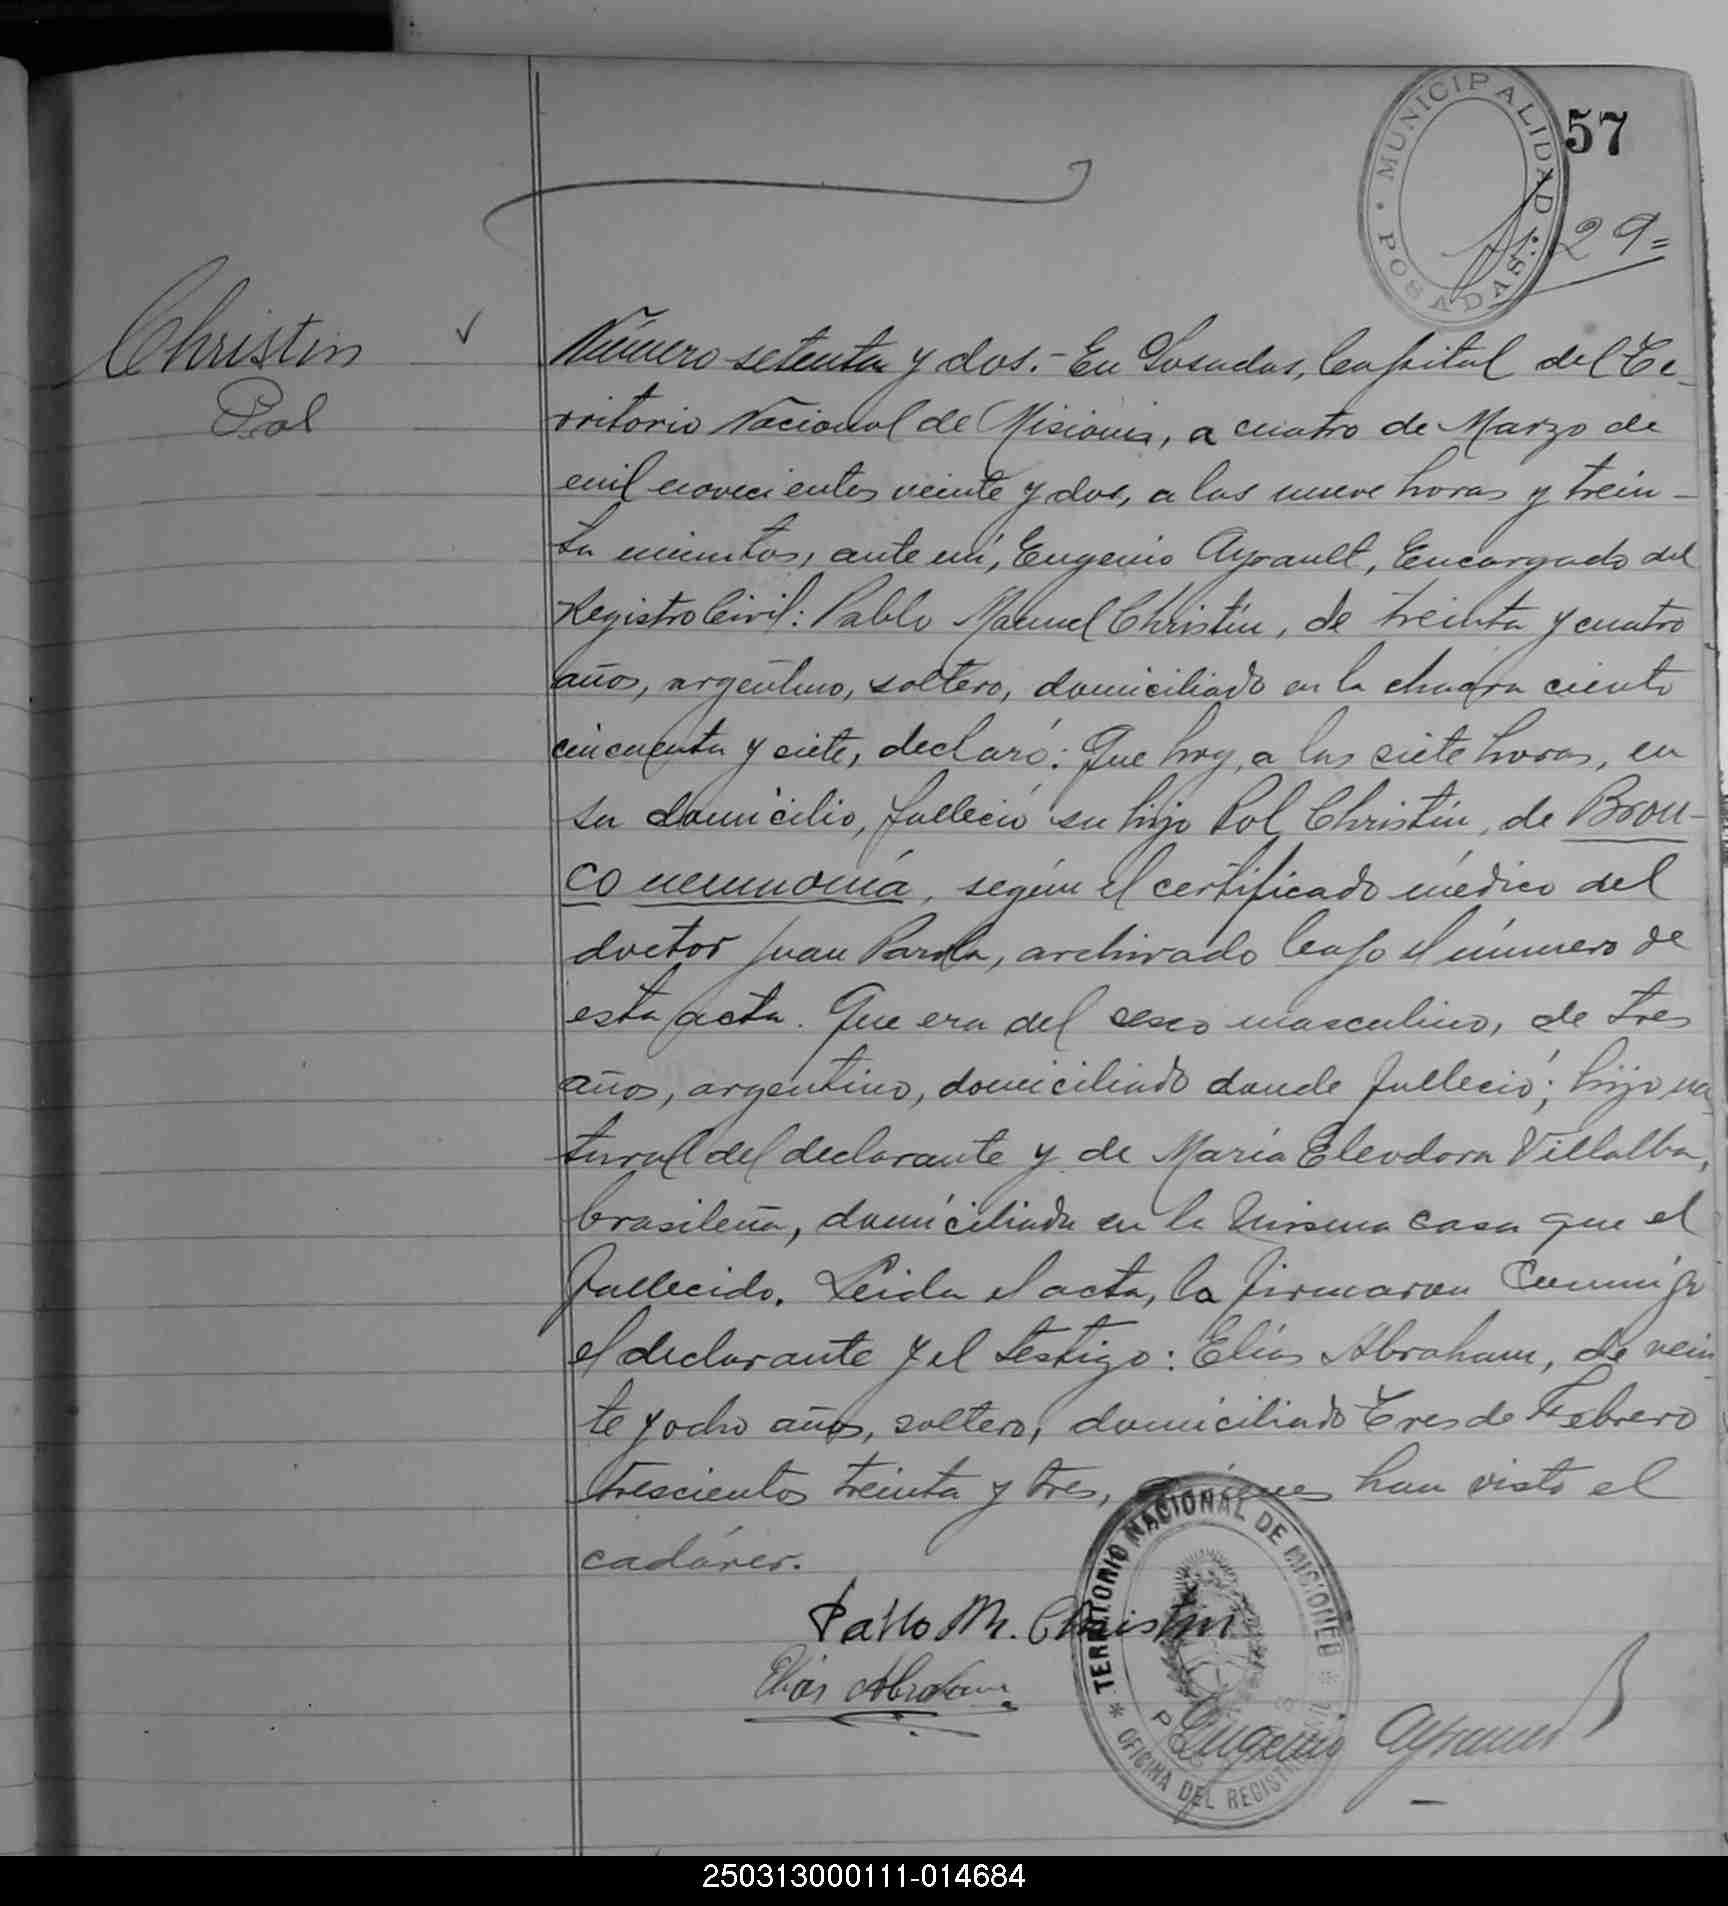 MUNICIPALIDAD
POSADAS
57
29=
Christin
Pol
Número setenta y dos.- En Posadas, Capital del Te-
rritorio Nacional de Misiones, a cuatro de Marzo de
mil novecientos veinte y dos, a las nueve horas y trein-
ta minutos, ante mí, Eugenio Ayrault, Encargado del
Registro Civil: Pablo Manuel Christin, de treinta y cuatro
años, argentino, soltero, domiciliado en la chacra ciento
cincuenta y siete, declaró: Que hoy, a las siete horas, en
su domicilio, falleció su hijo Pol Christin, de Bron-
co neumonía, según el certificado médico del
doctor Juan Parola, archivado bajo el número de
esta acta. Que era del sexo masculino, de tres
años, argentino, domiciliado donde falleció; hijo na-
tural del declarante y de María Eleodora Villalba,
brasileña, domiciliada en la misma casa que el
fallecido. Leida el acta, la firmaron conmigo
el declarante y el testigo: Elías Abraham, de vein-
te y ocho años, soltero, domiciliado Tres de Febrero
trescientos treinta y tres, quienes han visto el
cadáver.
Pablo M. Christin
Elías Abraham
Eugenio Ayrault
TERRITORIO NACIONAL DE MISIONES
OFICINA DEL REGISTRO CIVIL
250313000111-014684